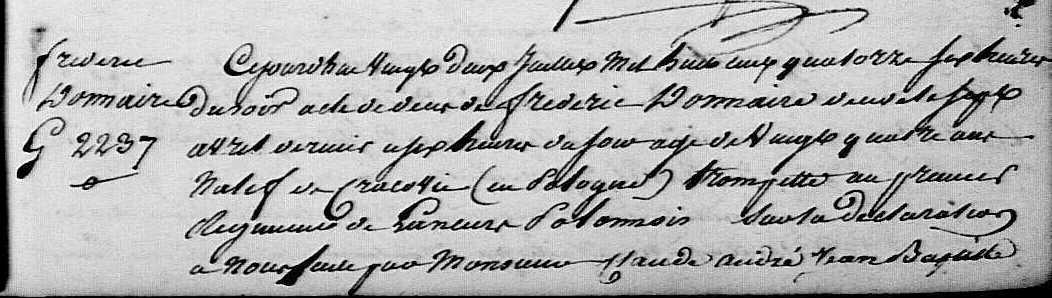 frederic
Donnaire
G 2237
Cejourdhui Vingt deux Juillet Mil huit cent quatorze six heures
du soir acte de deces de frederic Donnaire decede le sept
avril dernier a six heures du soir age de Vingt quatre ans
Natif de Cracovie (en Pologne) trompette au premier
Regiment de Lanciers Polonnois Sur la declaration
a Nous faite par Monsieur Claude andré Jean Baptiste